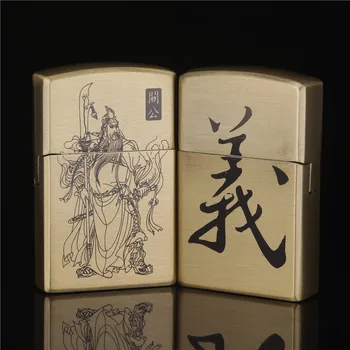 關公
義